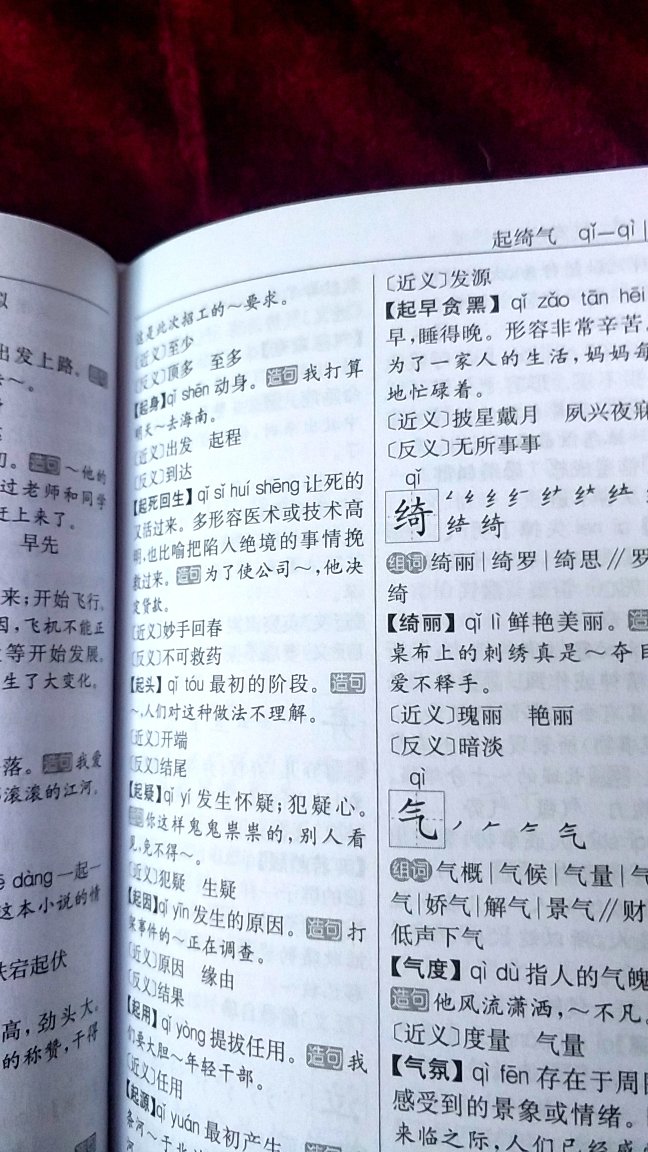 起绮气 qǐ—qì
出发上路。
造句～他的
过老师和同学
赶上来了。
早先
来；开始飞行。
因，飞机不能正
等开始发展。
生了大变化。
落。造句我爱
滚滚的江河。
dàng一起一
这本小说的情
跌宕起伏
高，劲头大。
的称赞，干得
这是此次招工的～要求。
〔近义〕至少
〔反义〕顶多 至多
【起身】qǐ shēn动身。造句我打算
明天～去海南。
〔近义〕出发 起程
〔反义〕到达
【起死回生】qǐ sǐ huí shēng让死的
又活过来。多形容医术或技术高
明，也比喻把陷入绝境的事情挽
救过来。造句为了使公司～，他决
定贷款。
〔近义〕妙手回春
〔反义〕不可救药
【起头】qǐ tóu最初的阶段。造句
～，人们对这种做法不理解。
〔近义〕开端
〔反义〕结尾
【起疑】qǐ yí发生怀疑；犯疑心。
造句你这样鬼鬼祟祟的，别人看
见，免不得～。
〔近义〕犯疑 生疑
【起因】qǐ yīn发生的原因。造句打
架事件的～正在调查。
〔近义〕原因 缘由
〔反义〕结果
【起用】qǐ yòng提拔任用。造句我
们要大胆～年轻干部。
〔近义〕任用
【起源】qǐ yuán最初产生
条河～于北
〔近义〕发源
【起早贪黑】qǐ zǎo tān hēi
早，睡得晚。形容非常辛苦。
为了一家人的生活，妈妈每
地忙碌着。
〔近义〕披星戴月 夙兴夜寐
〔反义〕无所事事
qǐ
绮
绮
组词绮丽|绮罗|绮思∥罗
绮
【绮丽】qǐ lì鲜艳美丽。造
桌布上的刺绣真是～夺目
爱不释手。
〔近义〕瑰丽 艳丽
〔反义〕暗淡
qì
气 气
组词气概|气候|气量|气
气|娇气|解气|景气∥财
低声下气
【气度】qì dù指人的气魄
造句他风流潇洒，～不凡。
〔近义〕度量 气量
【气氛】qì fēn存在于周围
感受到的景象或情绪。
来临之际，人们已经感